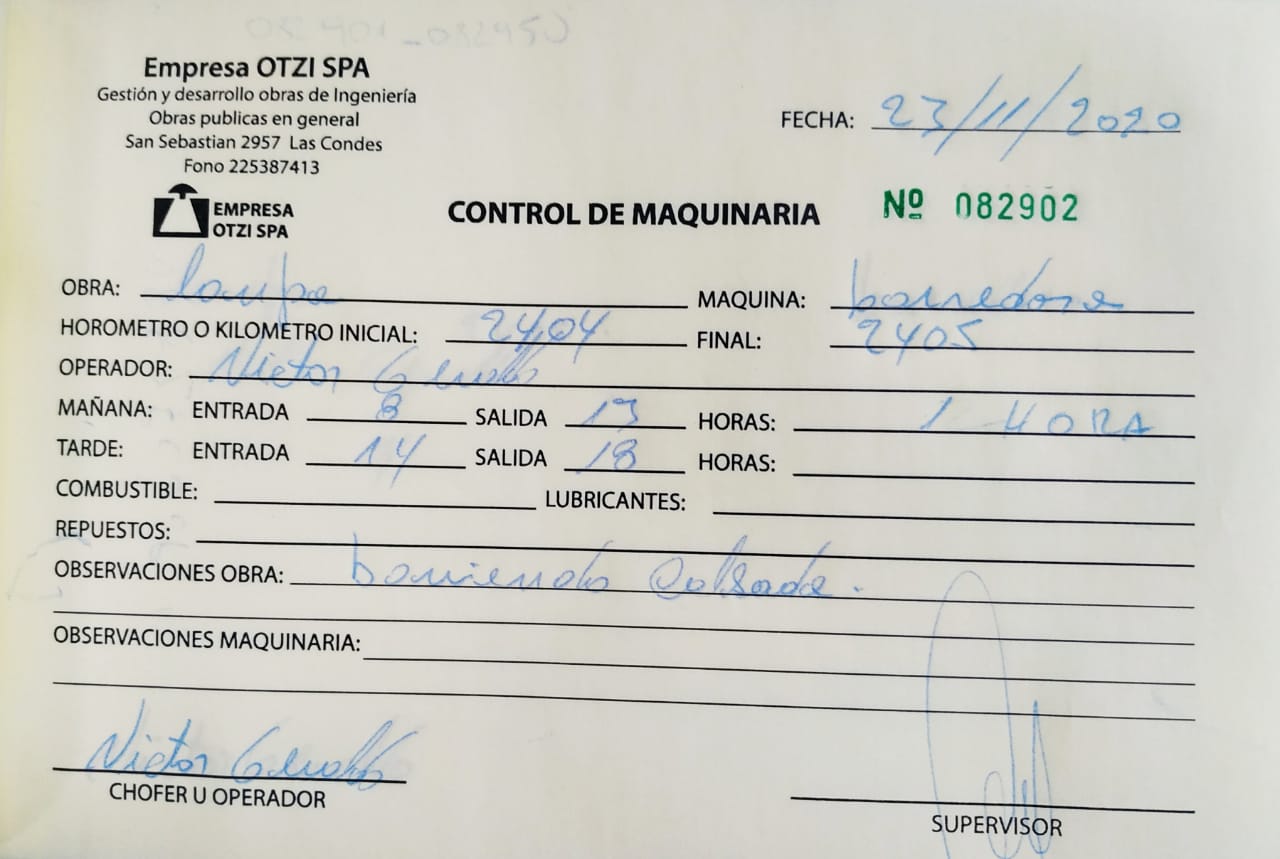 Empresa OTZI SPA
Gestión y desarrollo obras de Ingeniería
Obras publicas en general
San Sebastian 2957 Las Condes
Fono 225387413
FECHA: 23/11/2020
EMPRESA
OTZI SPA
CONTROL DE MAQUINARIA
Nº 082902
OBRA: lampa MAQUINA: barredora
HOROMETRO O KILOMETRO INICIAL: 2404 FINAL: 2405
OPERADOR: Victor
MAÑANA: ENTRADA 8 SALIDA 13 HORAS: 1 HORA
TARDE: ENTRADA 14 SALIDA 18 HORAS:
COMBUSTIBLE: LUBRICANTES:
REPUESTOS:
OBSERVACIONES OBRA: barriendo Calsada.
OBSERVACIONES MAQUINARIA:
Victor
CHOFER U OPERADOR
SUPERVISOR